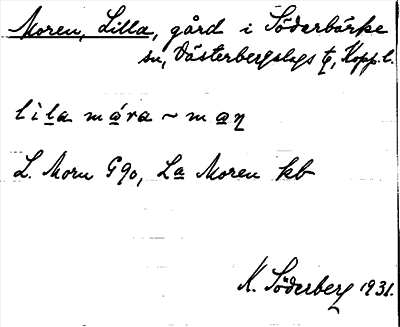 Moren, Lilla, gård i Söderbärke
sn, Västerbergslags tg, Kopp. l.
lila måra ~ m a ŋ
L. Morn G 90, La Moren kb
K. Söderberg 1931.